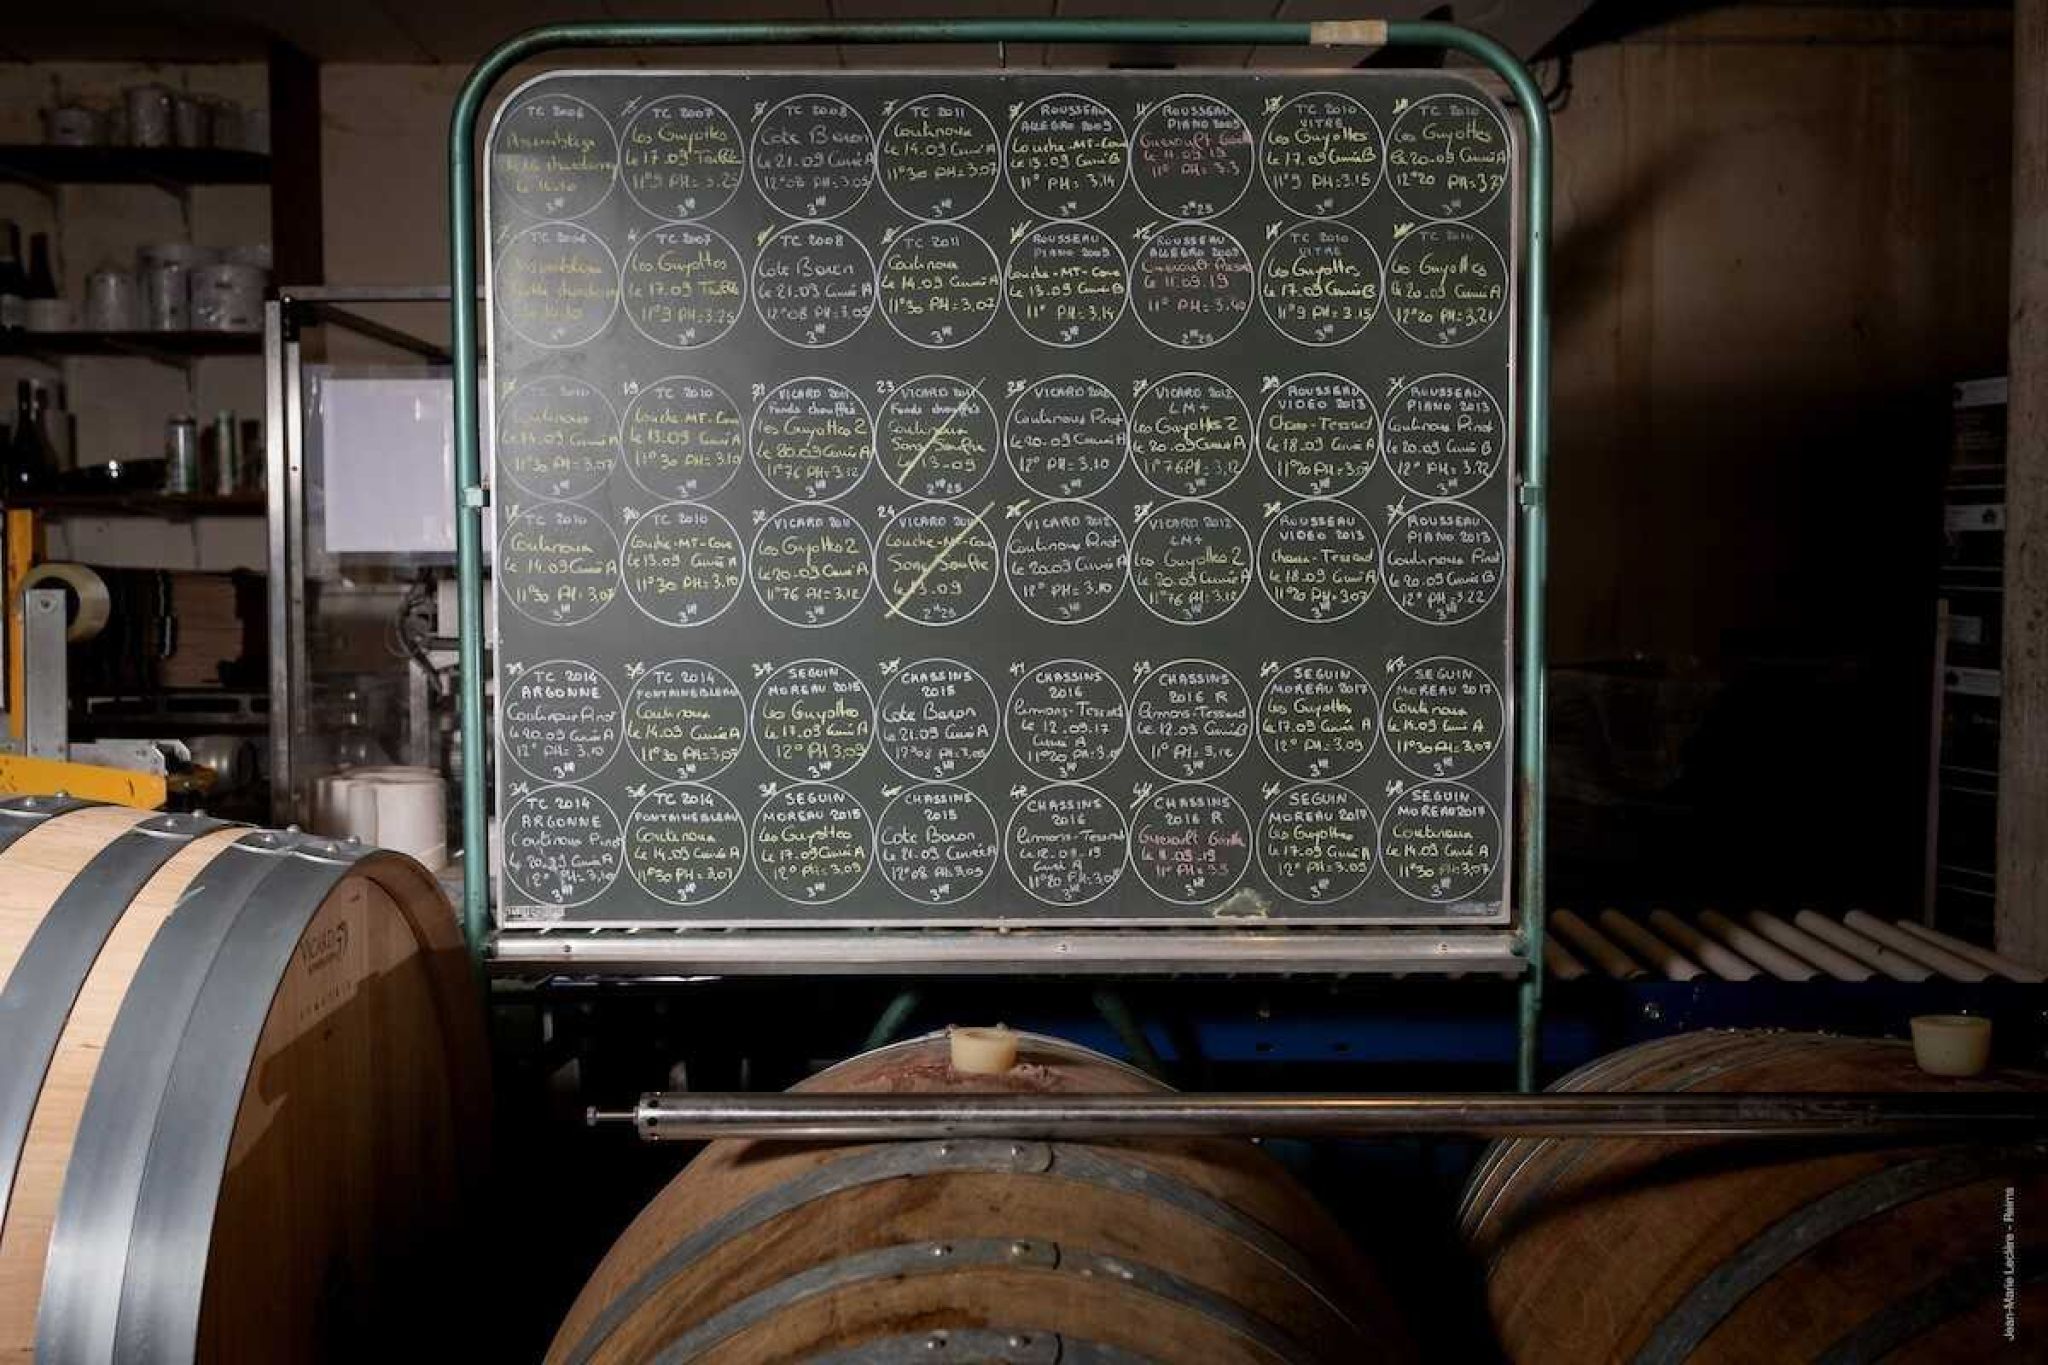 TC 2006
Assemblage
Le 14.10
3
TC 2007
Les Guyottes
Le 17.09
11°9 PH = 3.25
3
TC 2008
Cote Baron
Le 21.09 Cuvée A
12°08 PH = 3.05
3
7
TC 2011
Coutinoux
Le 14.09 Cuvée A
11°30 PH = 3.07
3
9
ROUSSEAU
ALLEGRO 2009
Louche-MT-Cove
Le 13.09 Cuvée B
11° PH = 3.14
3
11
ROUSSEAU
PIANO 2009
Le 11.09.19
11° PH = 3.3
2 25
13
TC 2010
VITAE
Les Guyottes
Le 17.09 Cuvée B
11°9 PH = 3.15
3
TC 2010
Les Guyottes
Le 20.09 Cuvée A
12°20 PH = 3.21
3
TC 2006
3
4
TC 2007
Les Guyottes
Le 17.09
11°9 PH = 3.25
3
TC 2008
Cote Baron
Le 21.09 Cuvée A
12°08 PH = 3.05
3
8
TC 2011
Coutinoux
Le 14.09 Cuvée A
11°30 PH = 3.07
3
10
ROUSSEAU
PIANO 2009
Louche-MT-Cove
Le 13.09 Cuvée B
11° PH = 3.14
3
12
ROUSSEAU
ALLEGRO 2009
Le 11.09.19
11° PH = 3.40
2 25
TC 2010
VITAE
Les Guyottes
Le 17.09 Cuvée B
11°9 PH = 3.15
3
TC 2010
Les Guyottes
Le 20.09 Cuvée A
12°20 PH = 3.21
3
17
TC 2010
Coutinoux
Le 14.09 Cuvée A
11°30 PH = 3.07
3
19
TC 2010
Louche-MT-Cove
Le 13.09 Cuvée A
11°30 PH = 3.10
3
21
VICARD 2011
Fonds chauffés
Les Guyottes 2
Le 20.09 Cuvée A
11°76 PH = 3.12
3
23
VICARD 2011
Fonds chauffés
Coutinoux
Sans Soufre
Le 13-09
2 25
25
VICARD 2012
Coutinoux Pinot
Le 20.09 Cuvée A
12° PH = 3.10
3
27
VICARD 2012
LM+
Les Guyottes 2
Le 20.09 Cuvée A
11°76 PH = 3.12
3
29
ROUSSEAU
VIDEO 2013
Le 18.09 Cuvée A
11°20 PH = 3.07
3
31
ROUSSEAU
PIANO 2013
Coutinoux Pinot
Le 20.09 Cuvée B
12° PH = 3.22
3
18
TC 2010
Coutinoux
Le 14.09 Cuvée A
11°30 PH = 3.07
3
20
TC 2010
Louche-MT-Cove
Le 13.09 Cuvée A
11°30 PH = 3.10
3
22
VICARD 2011
Les Guyottes 2
Le 20.09 Cuvée A
11°76 PH = 3.12
3
24
VICARD 2011
Louche-MT-Cove
Sans Soufre
Le 13.09
2 25
26
VICARD 2012
Coutinoux Pinot
Le 20.09 Cuvée A
12° PH = 3.10
3
28
VICARD 2012
LM+
Les Guyottes 2
Le 20.09 Cuvée A
11°76 PH = 3.12
3
30
ROUSSEAU
VIDEO 2013
Le 18.09 Cuvée A
11°20 PH = 3.07
3
32
ROUSSEAU
PIANO 2013
Coutinoux Pinot
Le 20.09 Cuvée B
12° PH = 3.22
3
33
TC 2014
ARGONNE
Coutinoux Pinot
Le 20.09 Cuvée A
12° PH = 3.10
3
35
TC 2014
FONTAINEBLEAU
Coutinoux
Le 14.09 Cuvée A
11°30 PH = 3.07
3
37
SEGUIN
MOREAU 2015
Les Guyottes
Le 17.09 Cuvée A
12° PH 3,09
3
39
CHASSINS
2015
Cote Baron
Le 21.09 Cuvée A
12°08 PH = 3.05
3
41
CHASSINS
2016
Le 12.09.19
Cuvée A
11°20 PH =
3
43
CHASSINS
2016 R
Le 12.09 Cuvée B
11° PH = 3,16
3
45
SEGUIN
MOREAU 2017
Les Guyottes
Le 17.09 Cuvée A
12° PH = 3.09
3
47
SEGUIN
MOREAU 2017
Coutinoux
Le 14.09 Cuvée A
11°30 PH = 3,07
3
34
TC 2014
ARGONNE
Coutinoux Pinot
Le 20.09 Cuvée A
12° PH = 3,10
3
36
TC 2014
FONTAINEBLEAU
Coutinoux
Le 14.09 Cuvée A
11°30 PH = 3,07
3
38
SEGUIN
MOREAU 2015
Les Guyottes
Le 17.09 Cuvée A
12° PH = 3,09
3
40
CHASSINS
2015
Cote Baron
Le 21.09 Cuvée A
12°08 PH = 3,05
3
42
CHASSINS
2016
Le 12.09.19
Cuvée A
11°20 PH =
3
44
CHASSINS
2016 R
Le 11.09.19
11° PH =
3
46
SEGUIN
MOREAU 2017
Les Guyottes
Le 17.09 Cuvée A
12° PH = 3.09
3
48
SEGUIN
MOREAU 2017
Coutinoux
Le 14.09 Cuvée A
11°30 PH = 3,07
3
VICARD
Jean-Marie Leclère - Reims